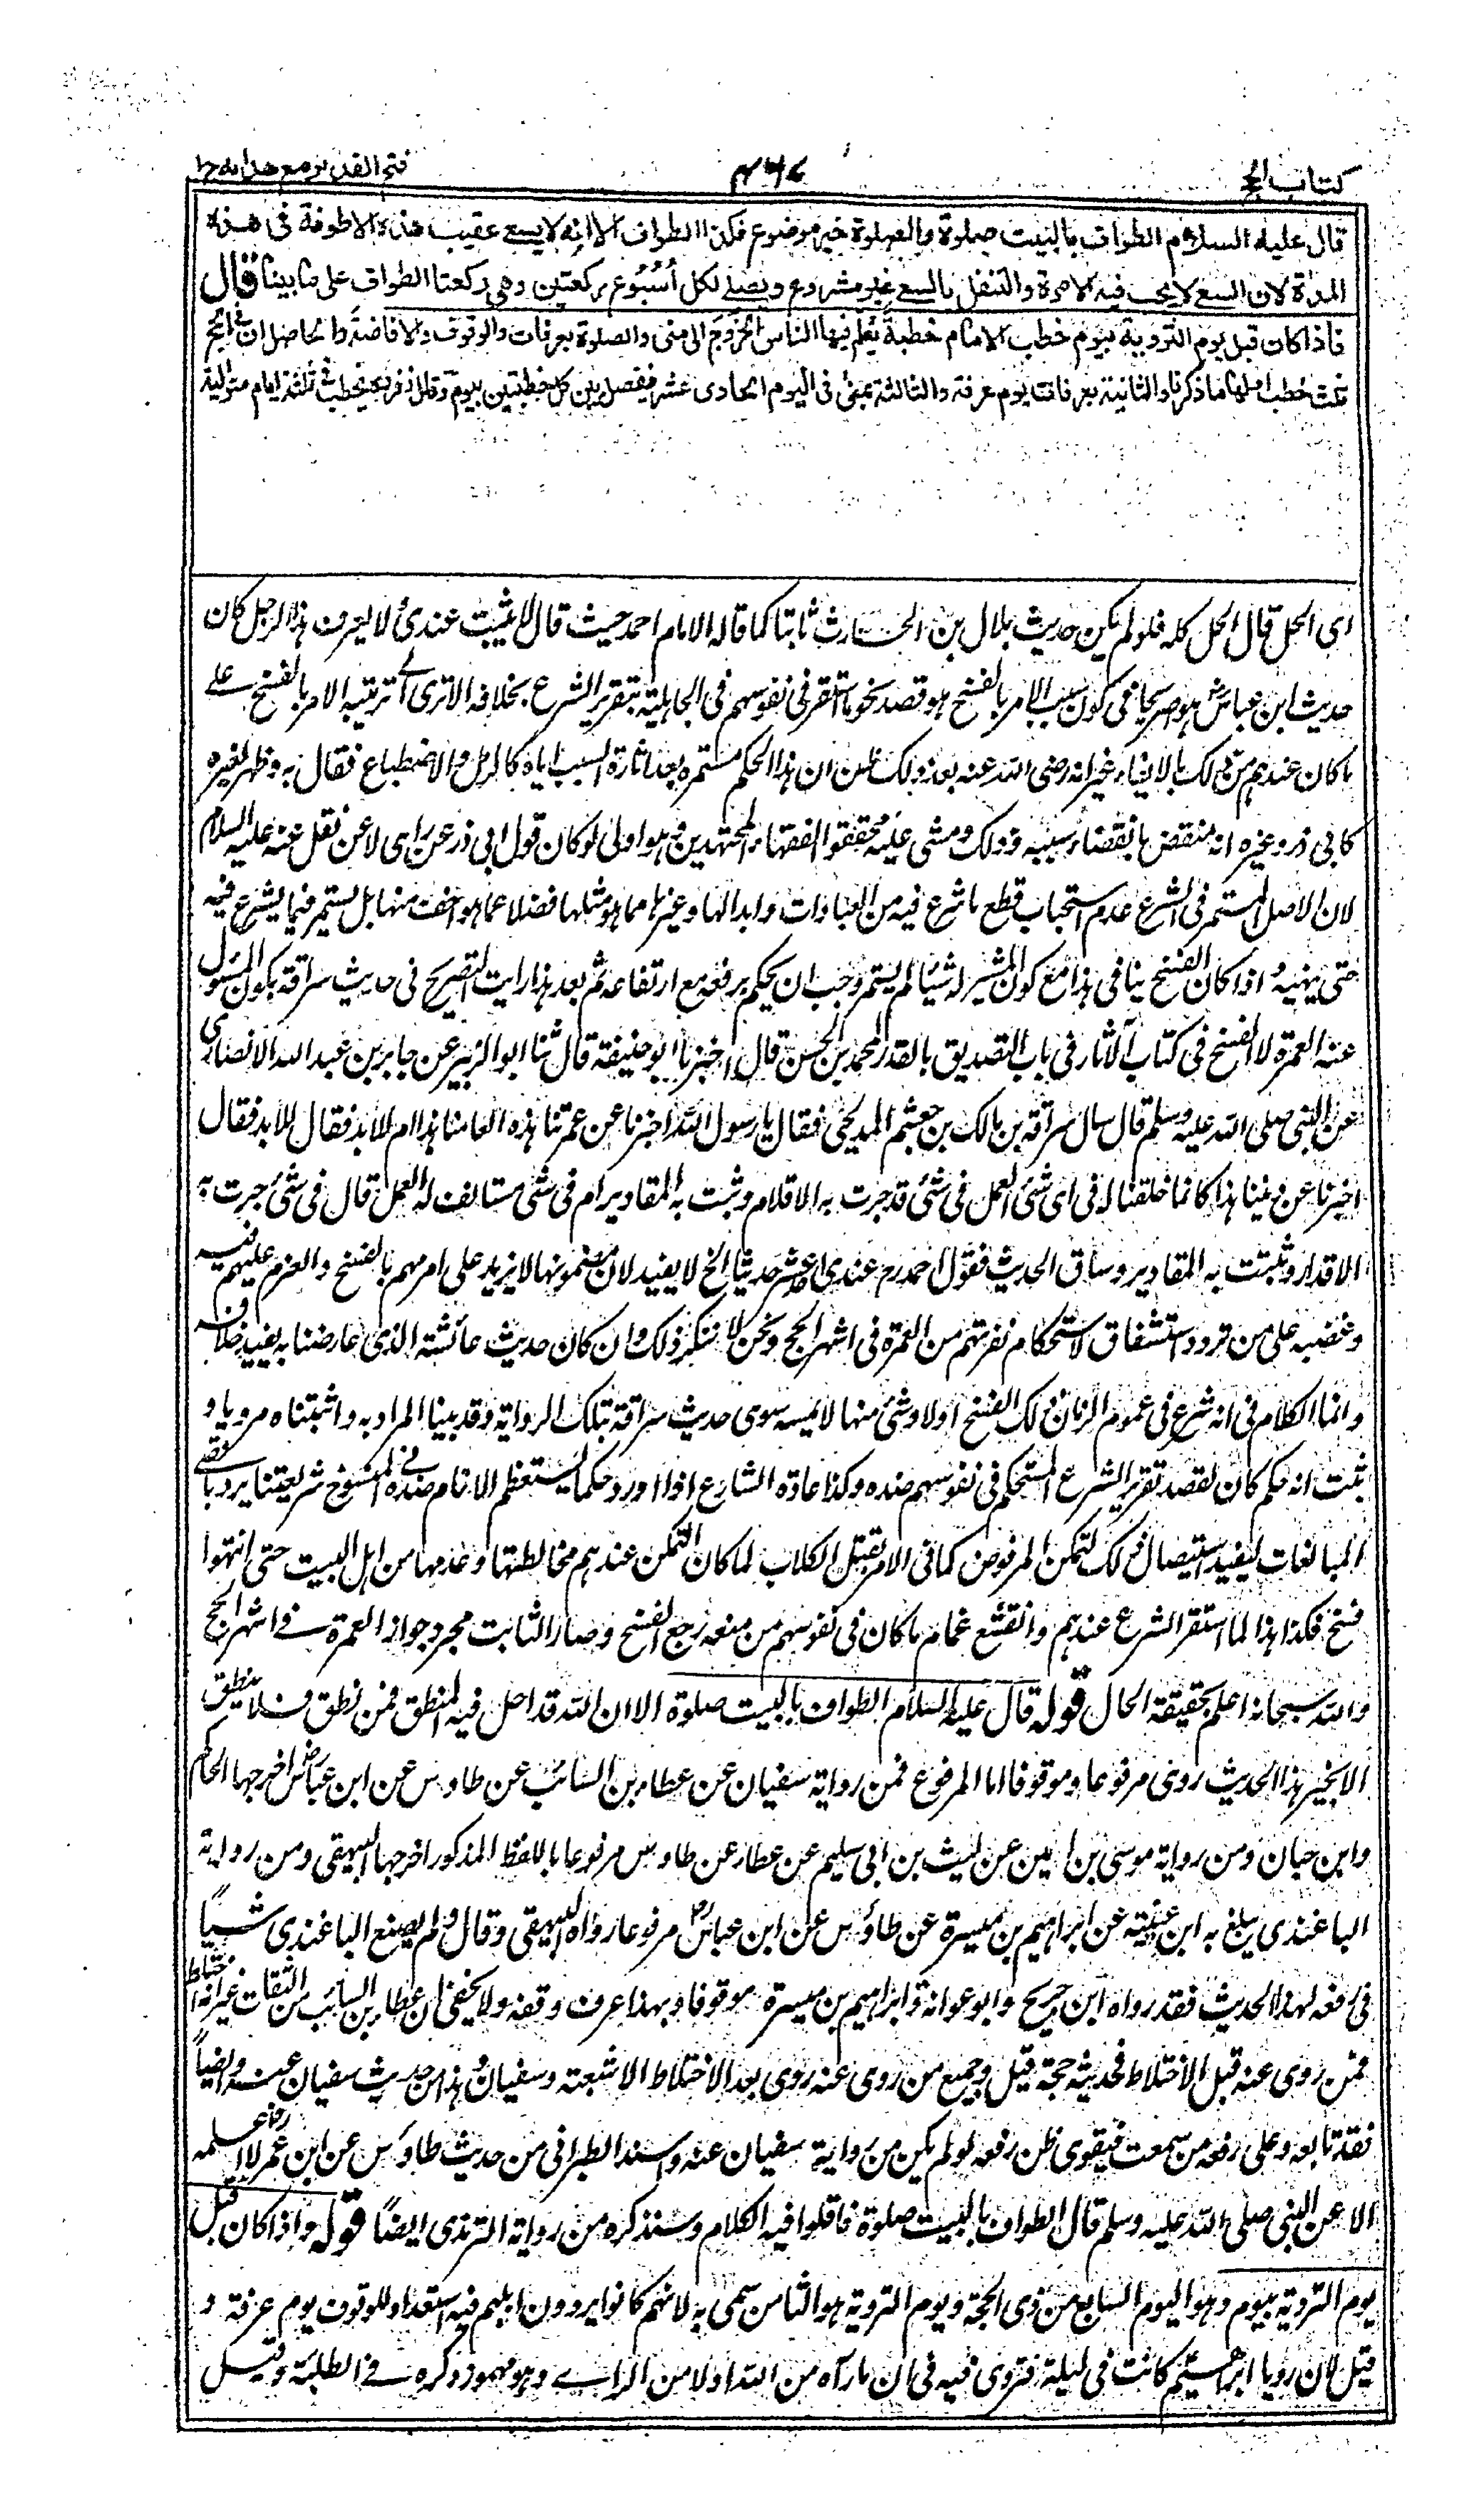 كتاب الحج
٣٦٧
فتح القدير مع هدايه ج١
قال عليه السلام الطواف بالبيت صلوة والصلوة خير موضوع فكذا الطواف الا انه لا يسعى عقيب هذه الاطوفة فى هذه
المدة لان السعى لا يجب فيه الا مرة والتنفل بالسعى غير مشروع ويصلى لكل أسبوع ركعتين وهى ركعتا الطواف على ما بينا قال
فاذا كان قبل يوم التروية بيوم خطب الامام خطبة يعلم فيها الناس الخروج الى منى والصلوة بعرفات والوقوف والافاضة والحاصل ان فى الحج
ثلث خطب اولها ما ذكرنا والثانية بعرفات يوم عرفة والثالثة بمنى فى اليوم الحادى عشر فيفصل بين كل خطبتين بيوم وقال زفر يخطب فى ثلثة ايام متوالية
اى الحل قال الحل كله فلو لم يكن حديث بلال بن الحارث ثابتا كما قاله الامام احمد حيث قال لا يثبت عندى لا يعرف هذا الرجل كان
حديث ابن عباس هو صريحا فى كون سبب الامر بالفسخ هو قصد نحو ما استقر فى نفوسهم فى الجاهلية بتقرير الشرع بخلافه الا ترى الى ترتيبه الامر بالفسخ على
ما كان عندهم من ذلك بالفاء غير انه رضى الله عنه بعد ذلك ظن ان هذا الحكم مستمر بعد اثارة السبب اياه كالرمل والاضطباع فقال به وظهر لغيره
كابى ذر وغيره انه منقض بانقضاء سببه ذلك ومشى عليه محققوا الفقهاء المجتهدين وهو اولى لو كان قول ابى ذر عن راى لا عن نقل عنه عليه السلام
لان الاصل المستمر فى الشرع عدم استحباب قطع ما شرع فيه من العبادات وابدالها وغيرها مما هو مثلها فضلا عما هو اخف منها بل يستمر فيما يشرع فيه
حتى ينهيه واذا كان الفسخ ينافى هذا مع كون المثير له شيئا لم يستمر وجب ان يحكم برفعه مع ارتفاعه ثم بعد هذا رايت التصريح فى حديث سراقة بكون المسئول
عنه العمرة لا الفسخ فى كتاب الآثار فى باب التصديق بالقدر لمحمد بن الحسن قال اخبرنا ابو حنيفة قال ثنا ابو الزبير عن جابر بن عبد الله الانصارى
عن النبى صلى الله عليه وسلم قال سال سراقة بن مالك بن جعشم المدلجى فقال يا رسول الله اخبرنا عن عمرتنا هذه العامنا هذا ام للابد فقال للابد فقال
اخبرنا عن ديننا هذا كانما خلقنا له فى اى شئ العمل فى شئ قد جرت به الاقلام وثبت به المقادير ام فى شئ مستانف له العمل قال فى شئ جرت به
الاقدار وثبتت به المقادير وساق الحديث فقول احمد رح عندى احد عشر حديثا الخ لا يفيد لان مضمونها لا يزيد على امرهم بالفسخ والعزم عليهم فيه
وغضبه على من تردد استشفاق لاستحكام نفرتهم من العمرة فى اشهر الحج ونحن لا ننكر ذلك وان كان حديث عائشة الذى عارضنا به يفيد خلافه
وانما الكلام فى انه شرع فى عموم الزمان ذلك الفسخ او لا وشئ منها لا يمسه سوى حديث سراقة بتلك الرواية وقد بينا المراد به واثبتناه مرويا و
ثبت انه حكم كان لقصد تقرير الشرع المستحكم فى نفوسهم ضده وكذا عادة الشارع اذا اورد حكما يستعظم الانام ضده المنسوخ فى شريعتنا يرد باقصى
المبالغات ليفيد استيصال ذلك التمكن المرفوض كما فى الامر بقتل الكلاب لما كان التمكن عندهم مخالطتها وعدها من اهل البيت حتى انتهوا
فنسخ فكذا هذا لما استقر الشرع عندهم وانقشع غمام ما كان فى نفوسهم من منعه رجع الفسخ وصار الثابت مجرد جواز العمرة فى اشهر الحج
والله سبحانه اعلم بحقيقة الحال قوله قال عليه السلام الطواف بالبيت صلوة الا ان الله قد احل فيه المنطق فمن نطق فلا ينطق
الا بخير هذا الحديث روى مرفوعا وموقوفا اما المرفوع فمن رواية سفيان عن عطاء بن السائب عن طاوس عن ابن عباس اخرجها الحاكم
وابن حبان ومن رواية موسى بن اعين عن ليث بن ابى سليم عن عطاء عن طاوس مرفوعا باللفظ المذكور اخرجها البيهقى ومن رواية
الباغندى يبلغ به ابن عيينة عن ابراهيم بن ميسرة عن طاؤس عن ابن عباس مرفوعا رواه البيهقى وقال ولم يصنع الباغندى شيئا
فى رفعه لهذا الحديث فقد رواه ابن جريج وابو عوانة وابراهيم بن ميسرة موقوفا وبهذا عرف وقفه ولا يخفى ان عطاء بن السائب من الثقات غير انه اختلط
فمن روى عنه قبل الاختلاط فحديثه حجة قيل وجميع من روى عنه روى بعد الاختلاط الا شعبة وسفيان وهذا من حديث سفيان عنه وايضا
فقد تابعه وعلى رفعه من سمعت فيقوى ظن رفعه لو لم يكن من رواية سفيان عنه واسند الطبرانى من حديث طاوس عن ابن عمر رض لا اعلمه
الا عن النبى صلى الله عليه وسلم قال الطواف بالبيت صلوة فاقلوا فيه الكلام وسنذكره من رواية الترمذى ايضا قوله واذا كان قبل
يوم التروية بيوم وهو اليوم السابع من ذى الحجة ويوم التروية هو الثامن سمى به لانهم كانوا يروون ابلهم فيه استعدادا للوقوف يوم عرفة و
قيل لان رويا ابراهيم كانت فى ليلة فتروى فيه فى ان ما رآه من الله او لا من الراى وهو مهموز ذكره فى الطلبة وقيل